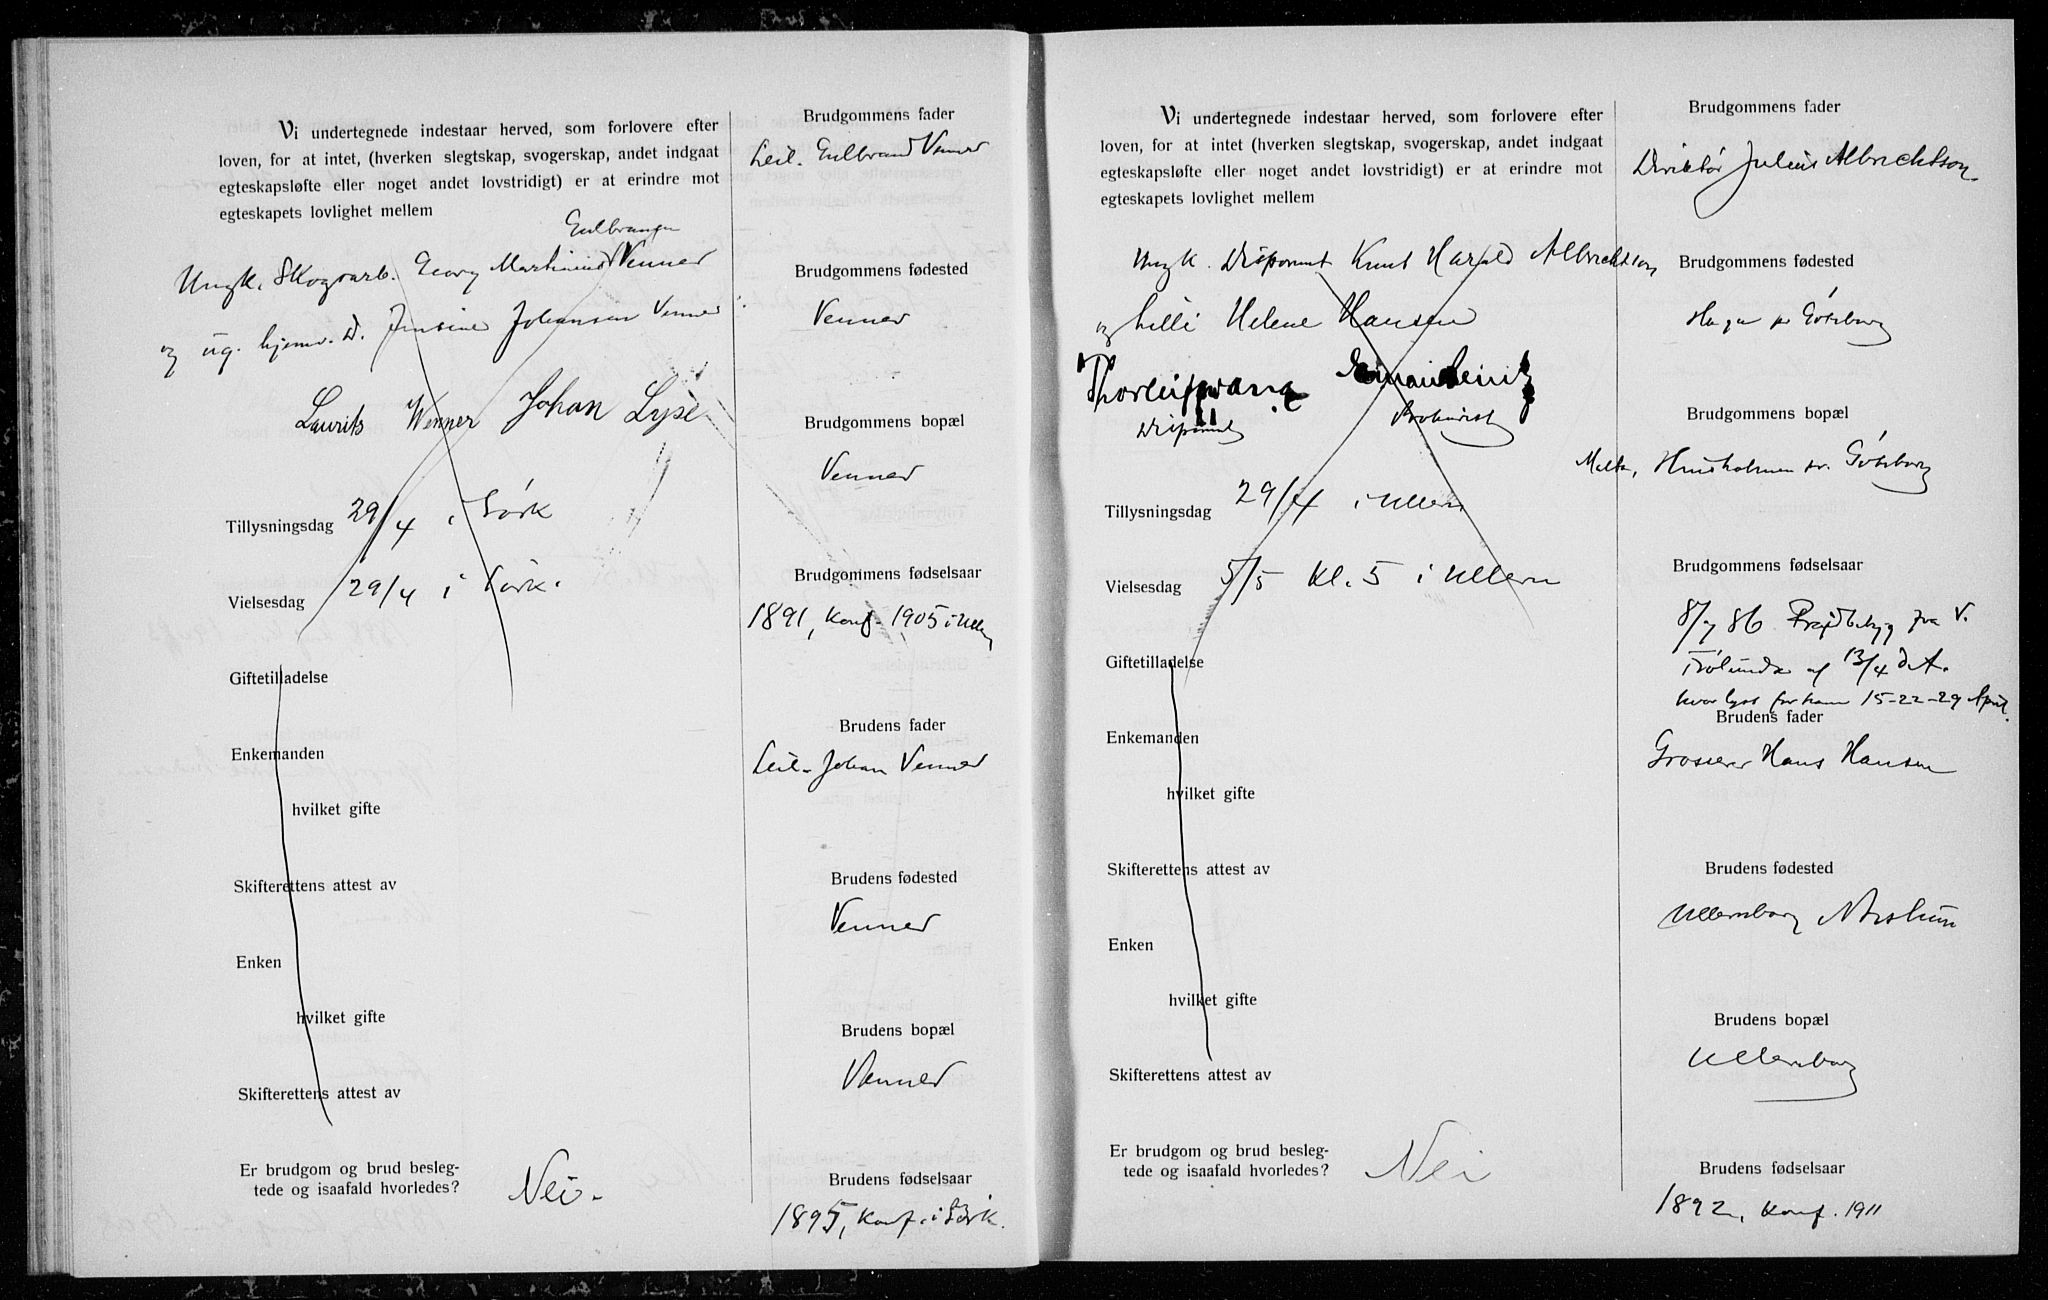 Vi undertegnede indestaar herved, som forlovere efter
loven, for at intet, (hverken slegtskap, svogerskap, andet indgaat
egteskapsløfte eller noget andet lovstridigt) er at erindre mot
egteskapets lovlighet mellem
Gulbrandsen
Ungk. Skogsarb. Georg Martinius Venner
og ug. hjemv. D. Jensine Johansen Venner
Laurits Wenner Johan Lyse
Tillysningsdag 29/4 i Sørk
Vielsesdag 29/4 i Sørk.
Giftetilladelse
Enkemanden
hvilket gifte
Skifterettens attest av
Enken
hvilket gifte
Skifterettens attest av
Er brudgom og brud besleg-
tede og isaafald hvorledes? Nei.
Brudgommens fader
Leil. Gulbrand Venner
Brudgommens fødested
Venner
Brudgommens bopæl
Venner
Brudgommens fødselsaar
1891, konf. 1905 i Ullern
Brudens fader
Leil. Johan Venner
Brudens fødested
Venner
Brudens bopæl
Venner
Brudens fødselsaar
1895, konf. i Sørk.
Vi undertegnede indestaar herved, som forlovere efter
loven, for at intet, (hverken slegtskap, svogerskap, andet indgaat
egteskapsløfte eller noget andet lovstridigt) er at erindre mot
egteskapets lovlighet mellem
Ungk. Disponent Knut Harald Albrechtson
og Lilli Helene Hansen
Disponent Prokurist
Tillysningsdag 29/4 i Ullern
Vielsesdag 5/5 kl. 5 i Ullern
Giftetilladelse
Enkemanden
hvilket gifte
Skifterettens attest av
Enken
hvilket gifte
Skifterettens attest av
Er brudgom og brud besleg-
tede og isaafald hvorledes? Nei
Brudgommens fader
Direktør Julius Albrechtson
Brudgommens fødested
Haga pr Göteborg
Brudgommens bopæl
pr. Göteborg
Brudgommens fødselsaar
8/7 86 fra V.
Frölunda af 13/4 d. A.
hvor lyst for ham 15-22-29 April.
Brudens fader
Grosserer Hans Hansen
Brudens fødested
Ullernborg
Brudens bopæl
Ullernborg
Brudens fødselsaar
1892, konf. 1911